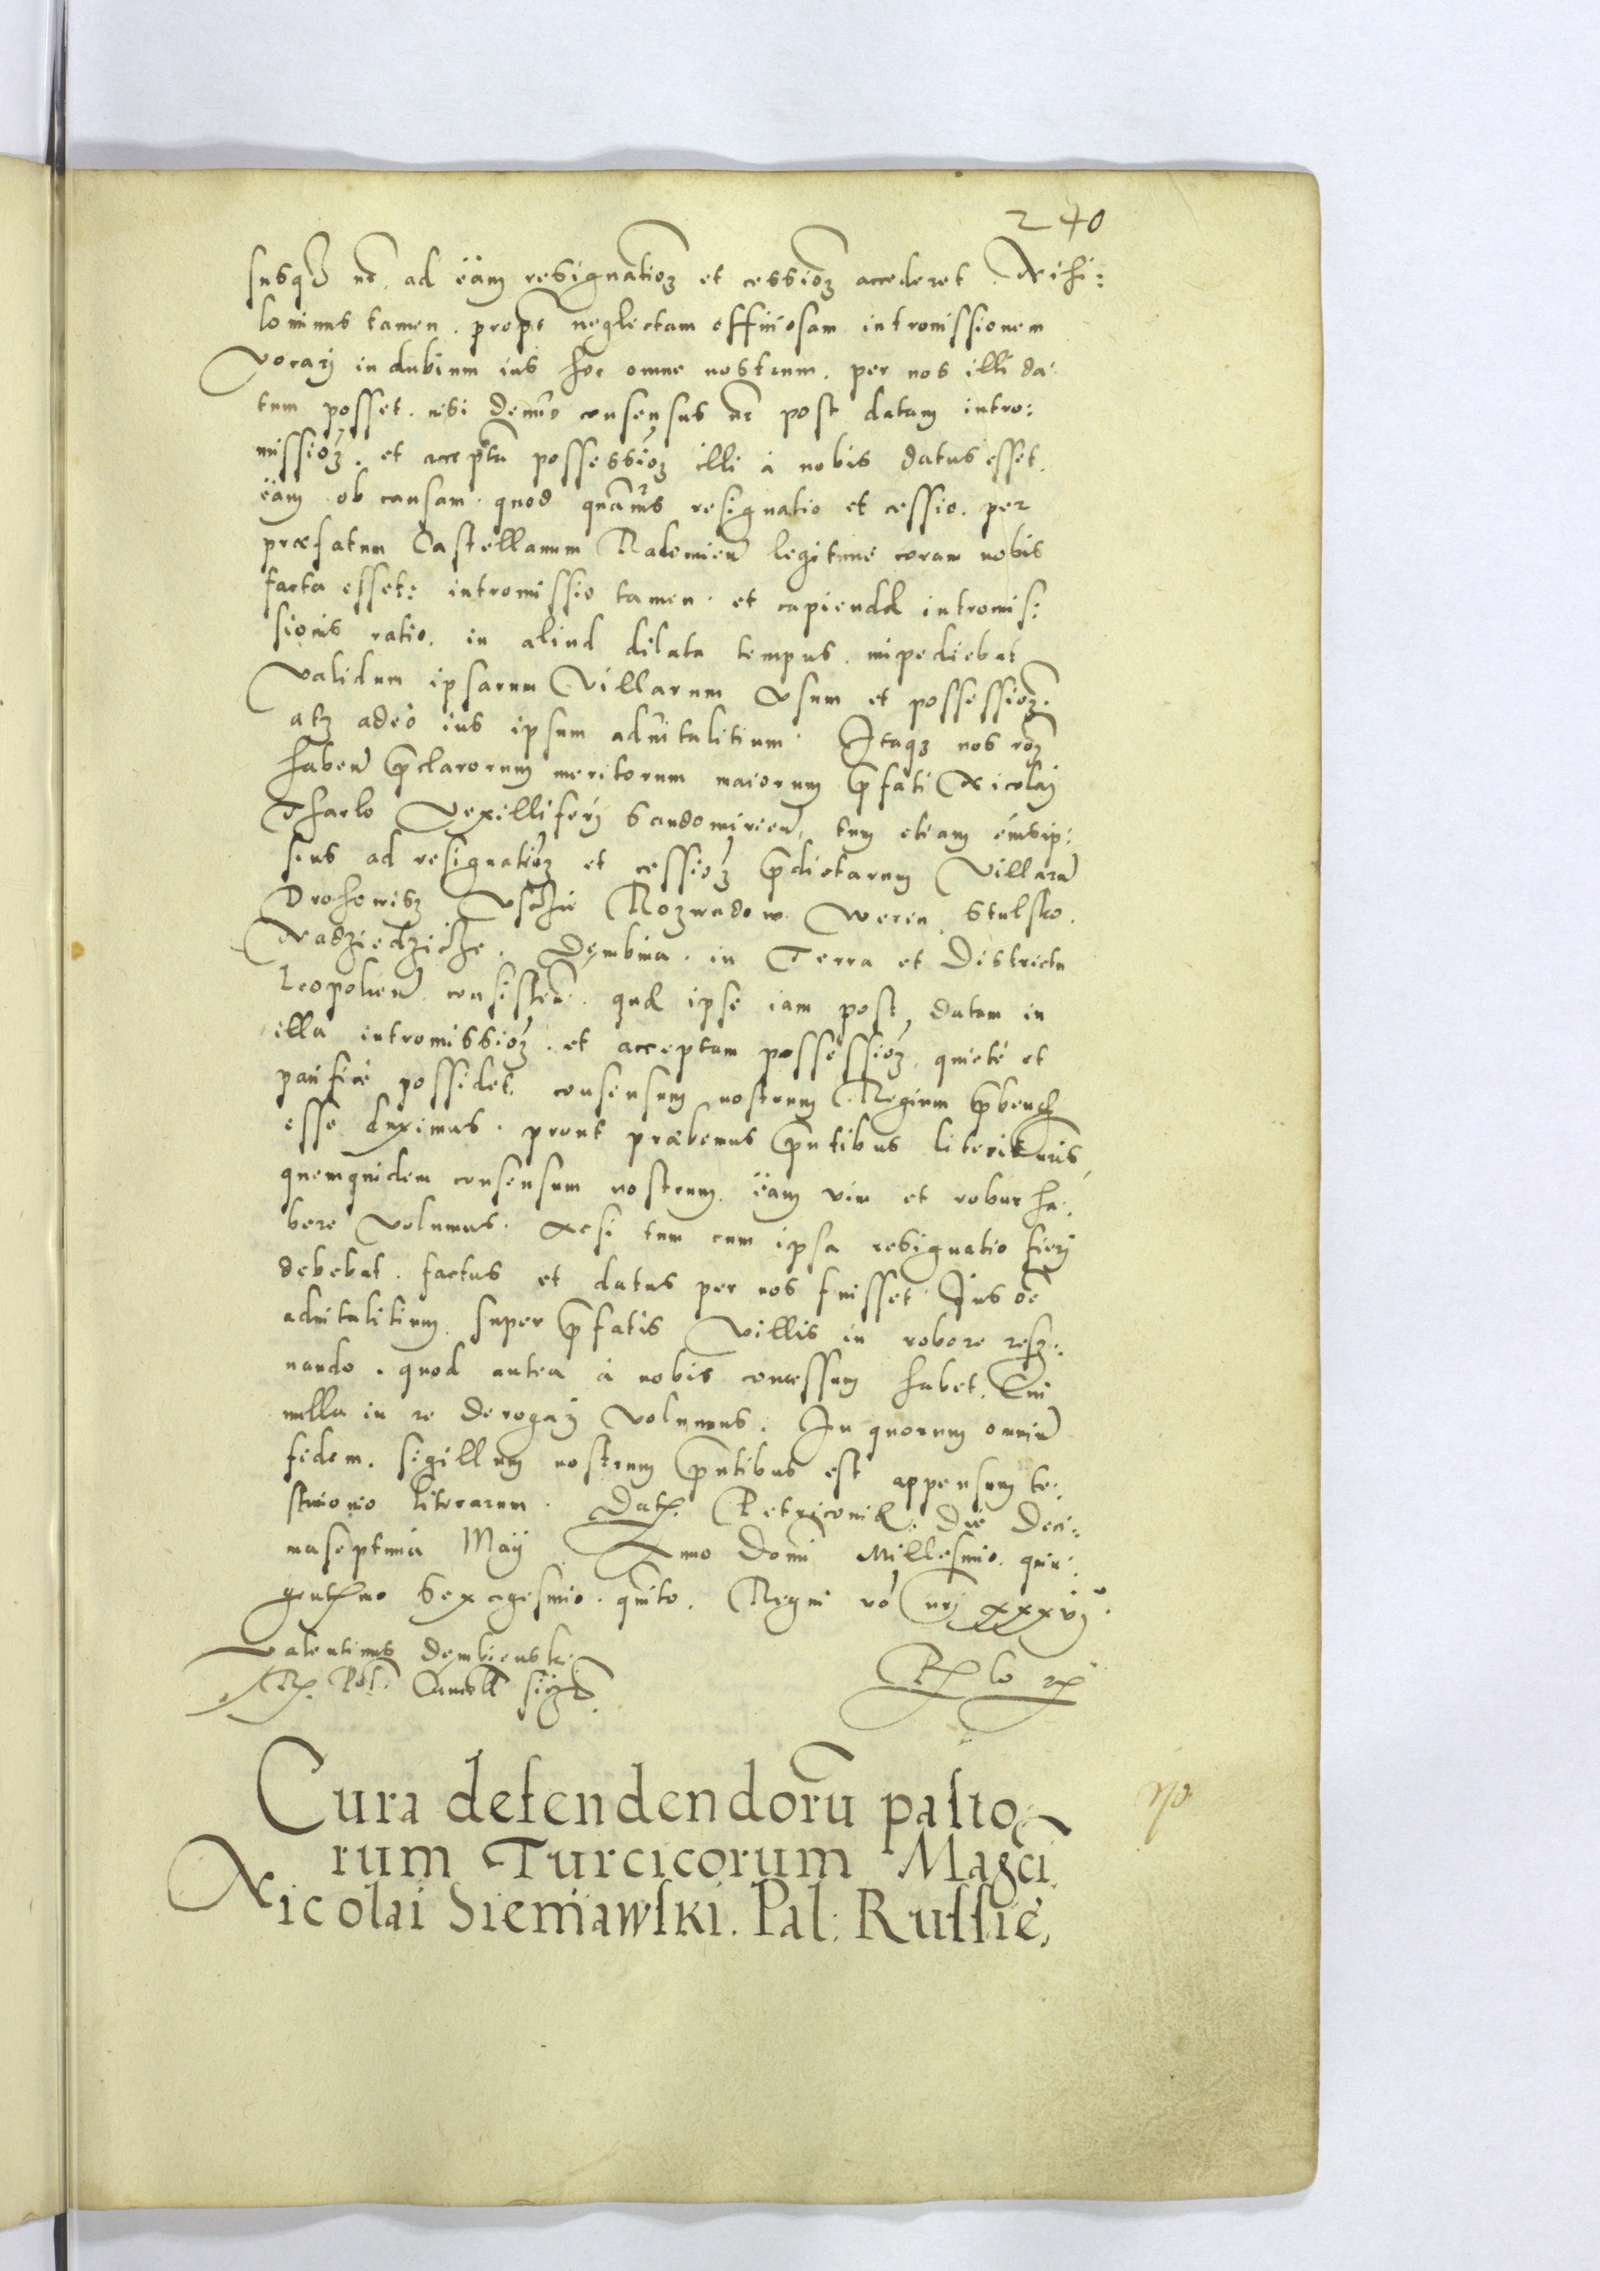 240
susq3 nr̃. ad eam resignatioɜ et cessioɜ accederet. Nihi:
lominus tamen. propt neglectam officiosam intromissionem
vocarj in dubium ius hoc omne nostrum. per nos illi da:
tum posset. nisi denuo consensus nr̃ post datam intro:
missioɜ. et acceptã possessioɜ illi à nobis datus esset.
eam ob causam. quod quãuis resignatio et cessio. per
præfatum Castellanum Radomien̄ legitime coram nobis
facta esset: intromissio tamen. et capiendæ intromis:
sionis ratio. in aliud dilata tempus. impediebat
validum ipsarum Villarum vsum et possessioɜ.
atɜ adeò ius ipsum aduitalitium. Itaqɜ nos rõɜ
haben̄ p̄clarorum meritorum maiorum p̄fati Nicolaj
Tharlo Vexilliferj Sandomirien̄, tum etiam
sius ad resignatioɜ et cessioɜ p̄dictarum Villarũ
Drohowisɜ Vsthie Rozwadow. Weryn. Stulsko.
Nadziedzicze. Dembina. in Terra et Districtu
Leopolien̄. consisten̄. quæ ipse iam post datam in
illa intromissioɜ. et acceptam possessioɜ. quietè et
pacificè possidet. consensum nostrum Regium p̄bend
esse duximus. prout præbemus p̄ntibus literis nr̃is,
quemquidem consensum nostrum. eam vim et robur ha:
bere volumus. acsi tum cum ipsa resignatio fierj
debebat. factus et datus per nos fuisset. Ius oẽ
aduitalitium. super p̄fatis Villis in robore resɜ:
uando. quod antea à nobis concessum habet. Cui
nulla in re derogarj volumus. In quorum omniũ
fidem. sigillum nostrum p̄ntibus est appensum te:
stimonio literarum. Dat. Petricouiæ. Die Deci:
maseptima Maij Anno Domi Millesimo. quin:
gentmo Sexagesimo. quinto. Regni vó nrj xxxvj°.
Valentinus Dembienski
R. Pol. Cancell̃
Cura defendendorũ pasto:
rum Turcicorum Magci
Nicolai Sieniawski. Pal: Russie,